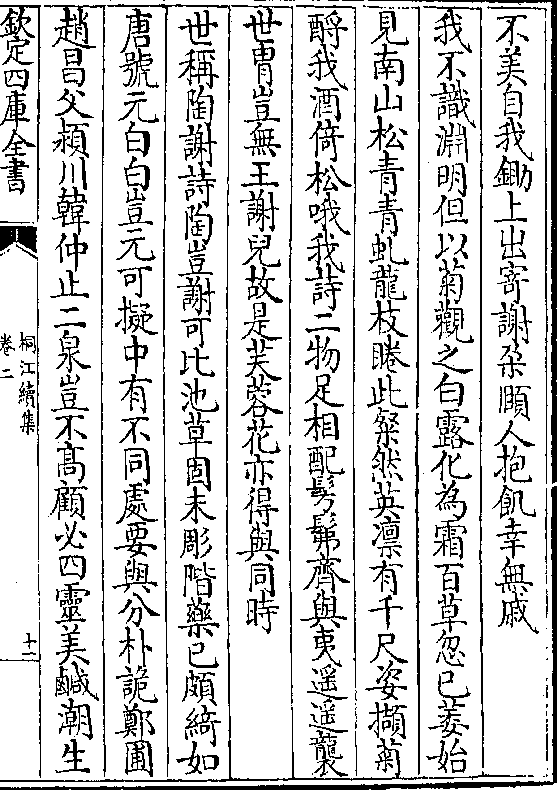 不美自我鋤上出寄謝朶頤人抱飢幸無戚
我不識淵明但以菊觀之白露化為霜百草忽已萎始
見南山松青青虬龍枝睠此粲然英凛有千尺姿擷菊
酹我酒倚松哦我詩二物足相配髣髴齊與夷遥遥襲
世胄豈無王謝兒故是芙蓉花亦得與同時
世稱陶謝詩陶豈謝可比池草固未彫階藥已頗綺如
唐號元白白豈元可擬中有不同處要與分朴詭鄭圃
趙昌父潁川韓仲止二泉豈不高顧必四靈美鹹潮生
欽定四庫全書
桐江續集
卷二
十二